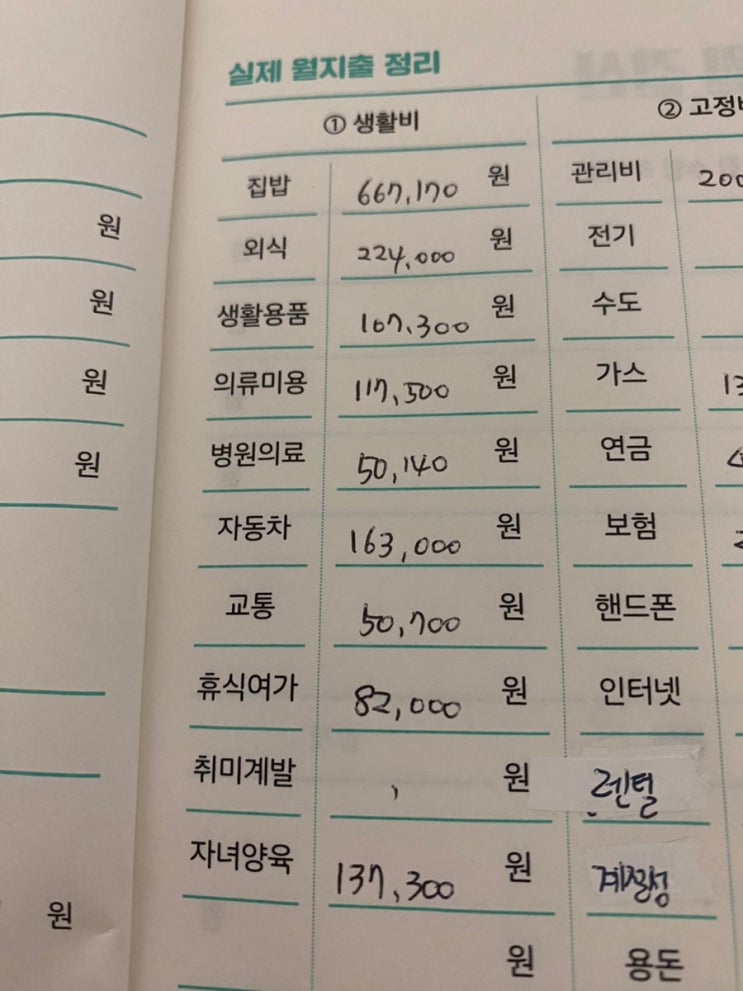 실제 월지출 정리
① 생활비 ② 고정비
집밥 667,170 원 관리비 200
원 외식 224,000 원 전기
원 생활용품 107,300 원 수도
원 의류미용 117,500 원 가스 13
원 병원의료 50,140 원 연금
자동차 163,000 원 보험 2
교통 50,700 원 핸드폰
휴식여가 82,000 원 인터넷
취미계발 , 원 렌털
자녀양육 137,300 원
원 원 용돈